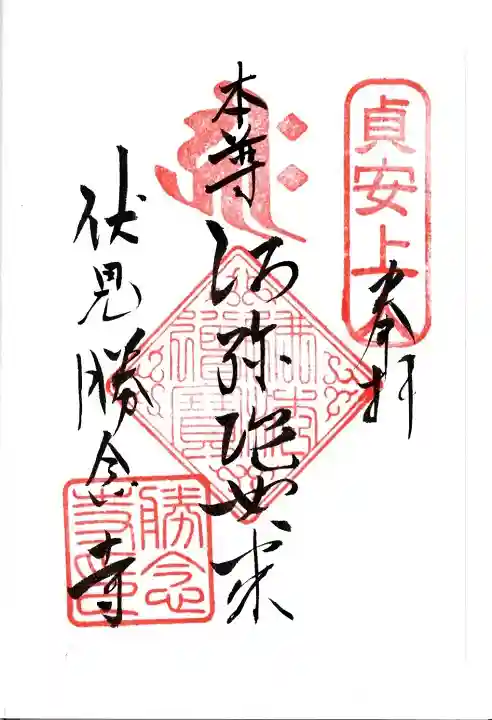 貞安上人
奉拝
本尊
阿弥陀如来
佛法僧寶
伏見勝念寺
勝念寺印